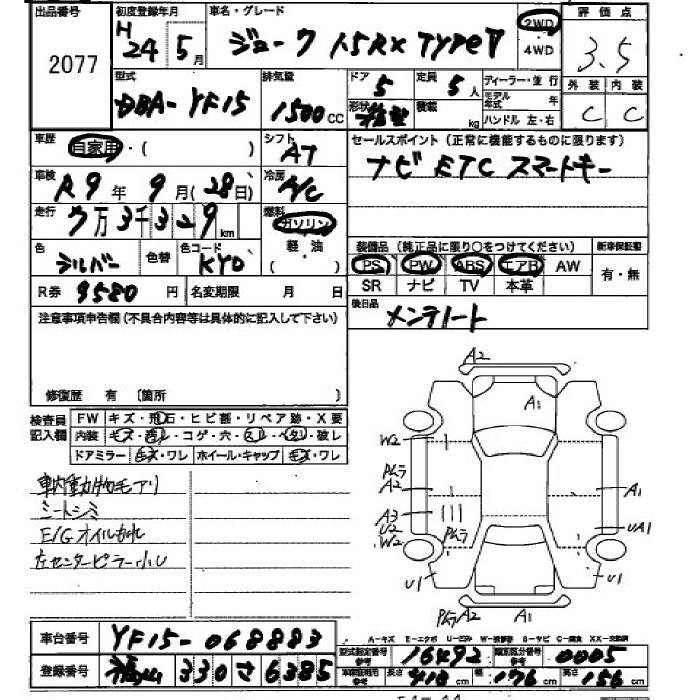 出品番号 初度登録年月 車名・グレード 2WD 評価点
2077 H24年5月 ジューク 15RX TYPE V 4WD 3.5
型式 排気量 ドア 定員 ディーラー・並行 外装 内装
DBA-YF15 1500CC 5 5人 モデル年式 年 C C
形状 箱型 積載 kg ハンドル 左・右
車歴 自家用・( ) シフト AT セールスポイント(正常に機能するものに限ります)
車検 R9年9月(28日) 冷房 A/C ナビ ETC スマートキー
走行 7万3千329km 燃料 ガソリン
軽油
( )
色 シルバー 色替 色コード KY0 装備品(純正品に限り○をつけてください) 新車保証書
PS PW ABS エアB AW 有・無
R券 9580円 名変期限 月 日 SR ナビ TV 本革
注意事項申告欄(不具合内容等は具体的に記入して下さい) 後日品 メンテノート
修復歴 有 〔箇所 〕
検査員記入欄 FW キズ・飛石・ヒビ割・リペア跡・X要
内装 キズ・汚レ・コゲ・穴・スレ・ヘタリ・破レ
ドアミラー キズ・ワレ ホイール・キャップ キズ・ワレ
車内動物毛アリ
シートシミ
E/Gオイルもれ
左センターピラー小U
A2
A1
W2
Pムラ
A2 A1
A3 UA1
U2
W2 Pムラ
U1 U1
Pムラ A2
A-キズ E-エクボ U-凹み W-補修跡 B-サビ C-腐食 XX-交換済
車台番号 YF15-068883 型式指定番号 参考 16492 類別区分番号 参考 0005
登録番号 福山 330 さ 6385 車検証明書 参考 長さ 413cm 幅 176cm 高さ 156cm